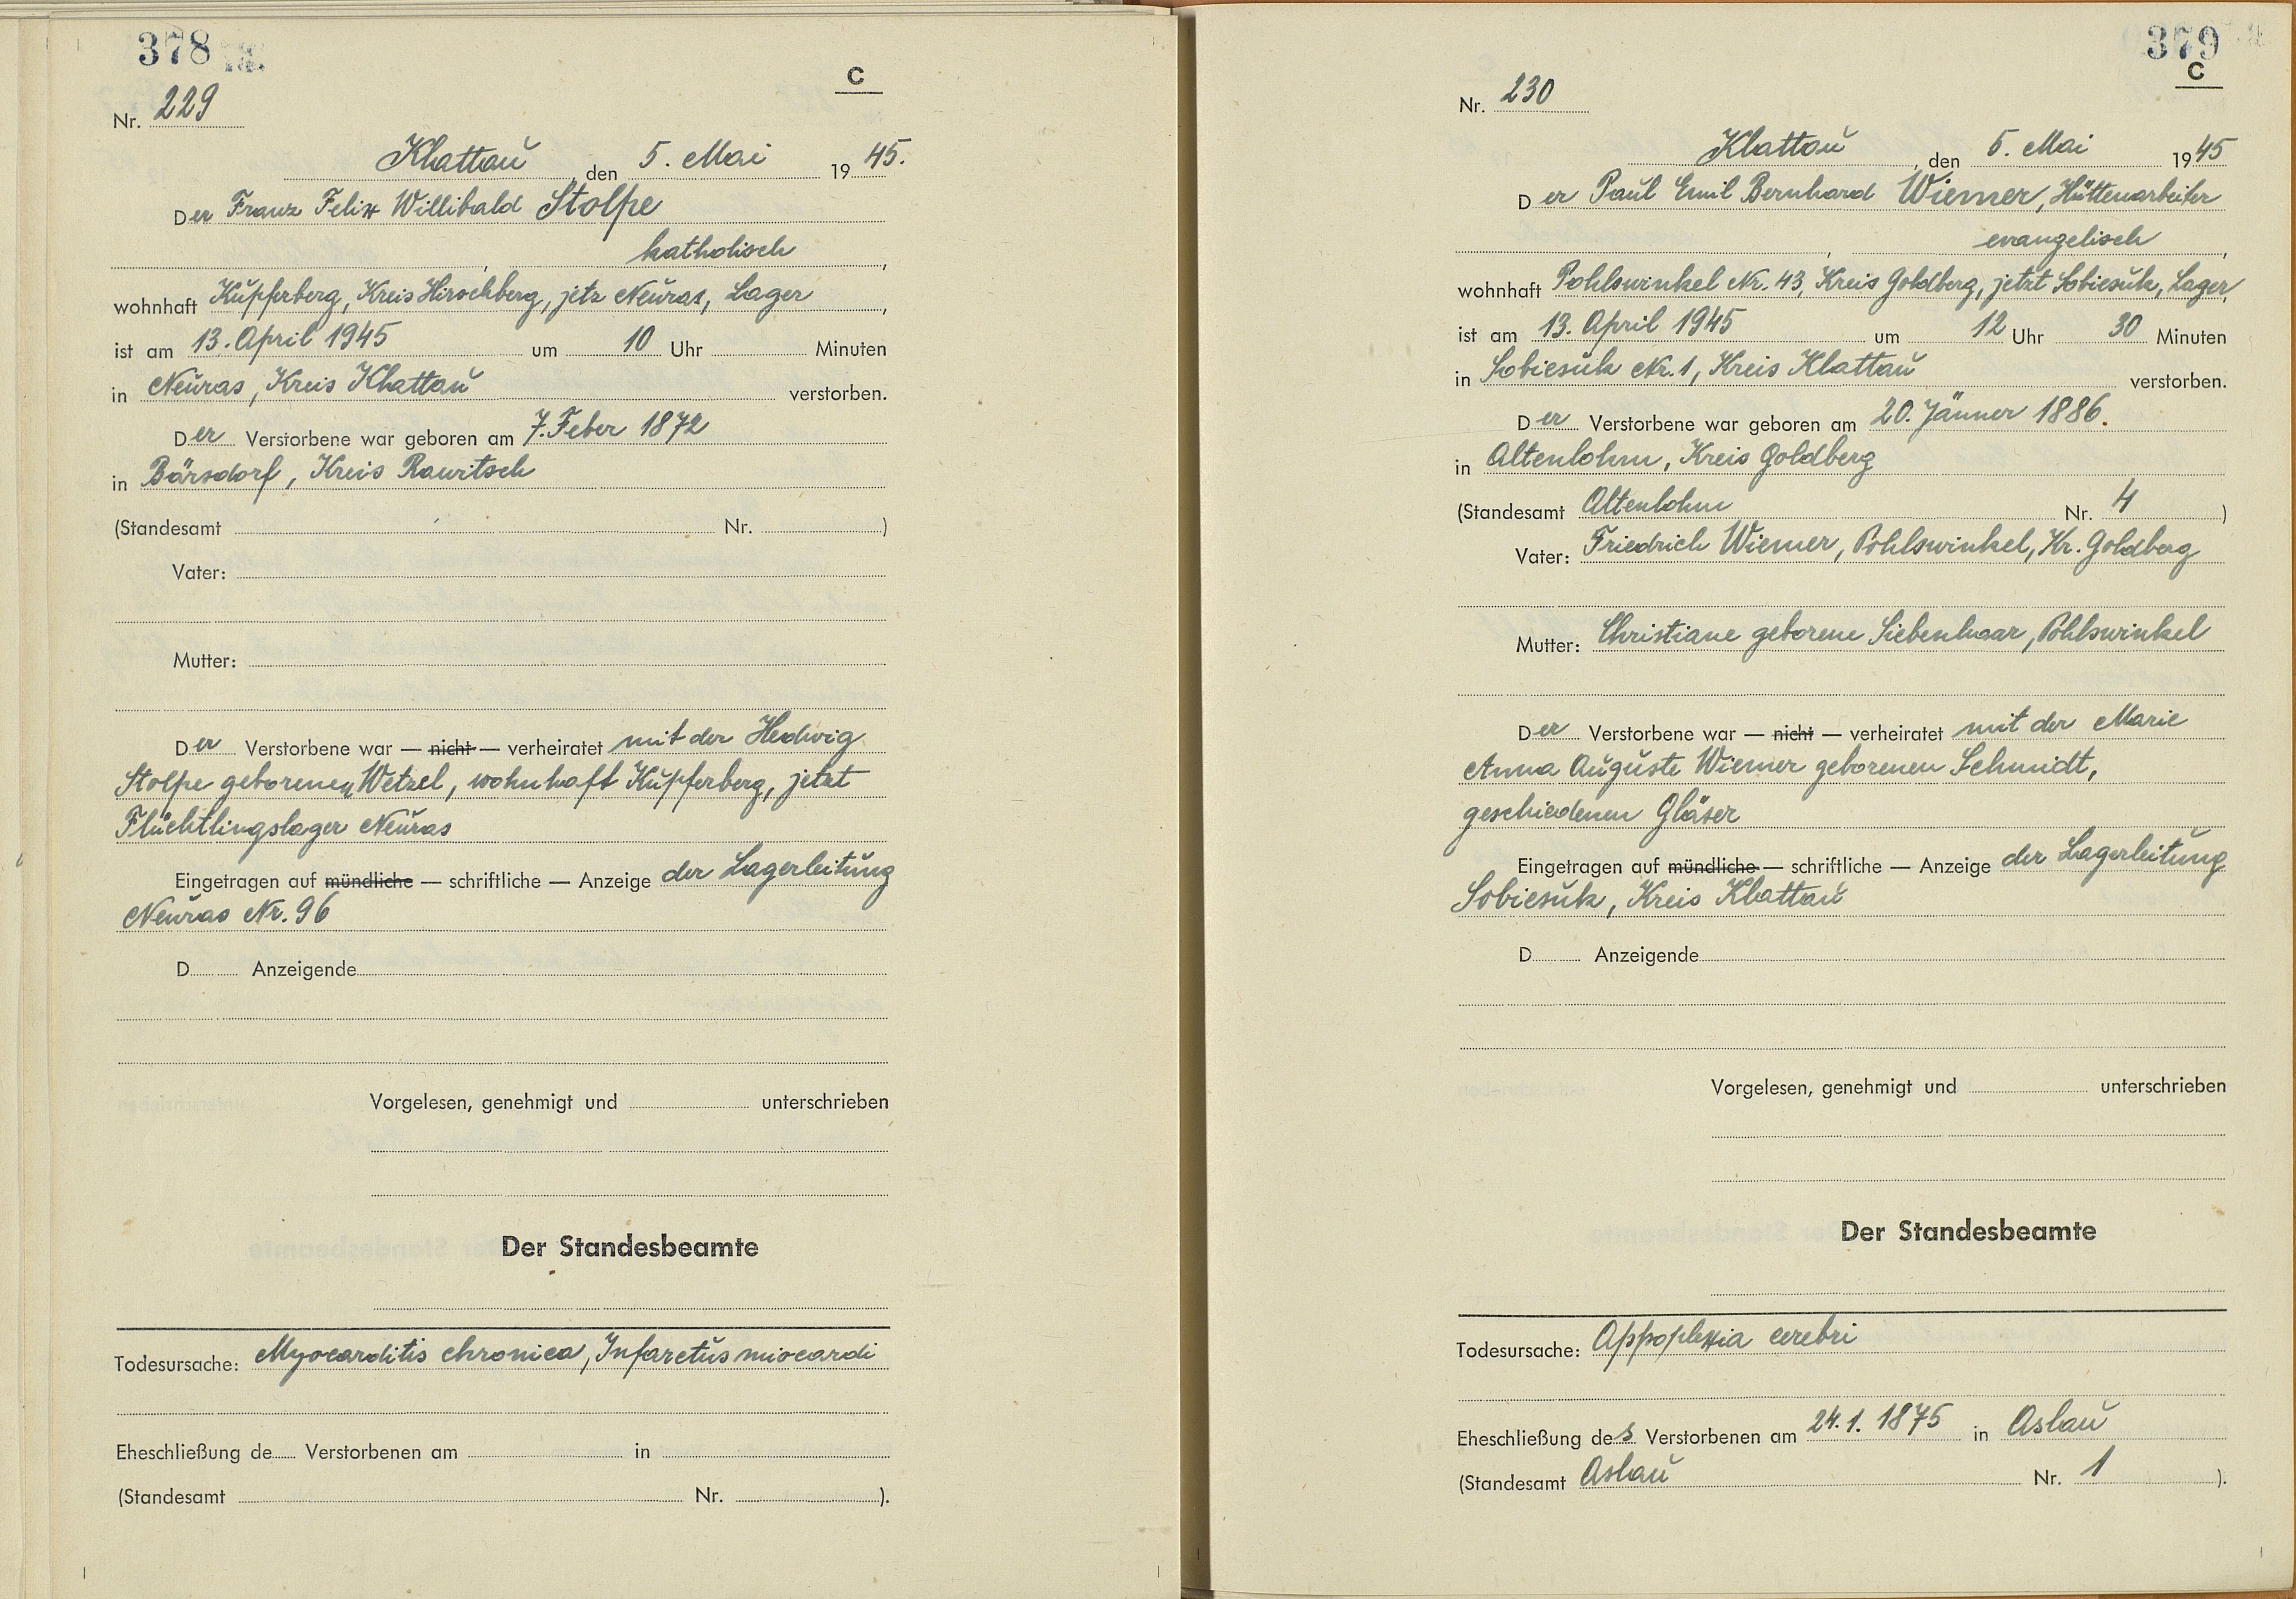 378
C
Nr. 229
Klattau, den 5. Mai 1945.
Der Franz Felix Willibald Stolpe
, katholisch,
wohnhaft Kupferberg, Kreis Hirschberg, jetz Neuras, Lager,
ist am 13. April 1945 um 10 Uhr Minuten
in Neuras, Kreis Klattau verstorben.
Der Verstorbene war geboren am 7. Feber 1872
in Bärsdorf, Kreis Rawitsch
(Standesamt Nr. )
Vater:
Mutter:
Der Verstorbene war — nicht — verheiratet mit der Hedwig
Stolpe geborenen Wetzel, wohnhaft Kupferberg, jetzt
Flüchtlingslager Neuras
Eingetragen auf mündliche — schriftliche — Anzeige der Lagerleitung
Neuras Nr. 96
D Anzeigende
Vorgelesen, genehmigt und unterschrieben
Der Standesbeamte
Todesursache: Myocarditis chronica, Infarctus miocardi
Eheschließung de Verstorbenen am in
(Standesamt Nr. ).
379
C
Nr. 230
Klattau, den 5. Mai 1945
Der Paul Emil Bernhard Wiemer, Hüttenarbeiter
, evangelisch,
wohnhaft Pohlswinkel Nr. 43, Kreis Goldberg, jetzt Sobiesuk, Lager,
ist am 13. April 1945 um 12 Uhr 30 Minuten
in Sobiesuk Nr. 1, Kreis Klattau verstorben.
Der Verstorbene war geboren am 20. Jänner 1886.
in Altenlohm, Kreis Goldberg
(Standesamt Altenlohm Nr. 4 )
Vater: Friedrich Wiemer, Pohlswinkel, Kr. Goldberg
Mutter: Christiane geborene Siebenhaar, Pohlswinkel
Der Verstorbene war — nicht — verheiratet mit der Marie
Anna Auguste Wiemer geborenen Schmidt,
geschiedenen Gläser
Eingetragen auf mündliche — schriftliche — Anzeige der Lagerleitung
Sobiesuk, Kreis Klattau
D Anzeigende
Vorgelesen, genehmigt und unterschrieben
Der Standesbeamte
Todesursache: Appoplexia cerebri
Eheschließung des Verstorbenen am 24.1.1875 in Aslau
(Standesamt Aslau Nr. 1 ).